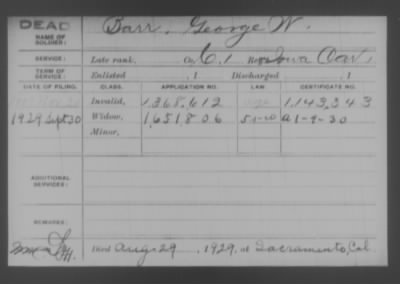 DEAD
NAME OF SOLDIER:
Barr, George W.
SERVICE: Late rank, Co. C, 1 Reg't Iowa Cav.
TERM OF SERVICE: Enlisted , 1 Discharged , 1
DATE OF FILING. CLASS. APPLICATION NO. LAW CERTIFICATE NO.
Invalid, 1,368,612 1,143,343
1929 Sept 30 Widow, 1,651,806 A 1-9-30
Minor,
ADDITIONAL SERVICES:
REMARKS:
Died Aug. 29, 1929, at Sacramento, Cal